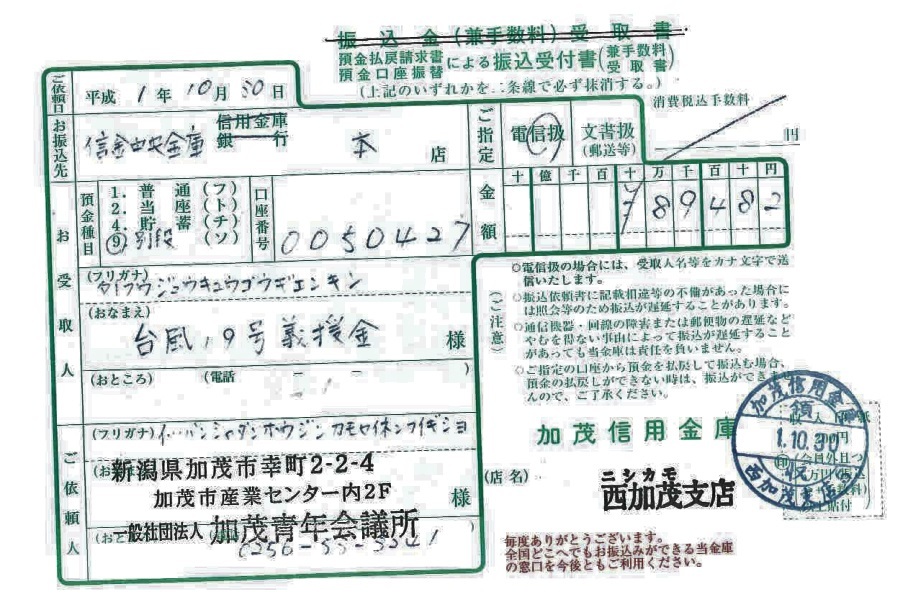 振込金(兼手数料)受取書
預金払戻請求書
預金口座振替
による振込受付書(兼手数料
受取書)
(上記のいずれかを二条線で必ず抹消する。)
ご依頼日
平成 1年 10月 30日
お振込先
信金中央金庫
信用金庫
銀行
本 店
ご指定
電信扱
文書扱
(郵送等)
消費税込手数料
円
預金種目
1. 普通(フ)
2. 当座(ト)
4. 貯蓄(チ)
⑨ 別段(ソ)
口座番号
0050427
金額
十 億 千 百 十 万 千 百 十 円
¥ 8 9 4 8 2
お受取人
(フリガナ)
タイフウジュウキュウゴウギエンキン
(おなまえ)
台風19号義援金 様
(おところ) (電話 - - )
(ご注意)
○電信扱の場合には、受取人名等をカナ文字で送
信いたします。
○振込依頼書に記載相違等の不備があった場合に
は照会等のため振込が遅延することがあります。
○通信機器・回線の障害または郵便物の遅延など
やむを得ない事由によって振込が遅延すること
があっても当金庫は責任を負いません。
○ご指定の口座から預金を払戻して振込む場合、
預金の払戻しができない時は、振込ができませ
んので、ご了承ください。
ご依頼人
(フリガナ)
イッパンシャダンホウジン カモセイネンカイギショ
新潟県加茂市幸町2-2-4
加茂市産業センター内2F
様
一般社団法人 加茂青年会議所
加茂信用金庫
(店名)
ニシカモ
西加茂支店
加茂信用金庫
領
1.10.30
収
西加茂支店
毎度ありがとうございます。
全国どこへでもお振込みができる当金庫
の窓口を今後ともご利用ください。